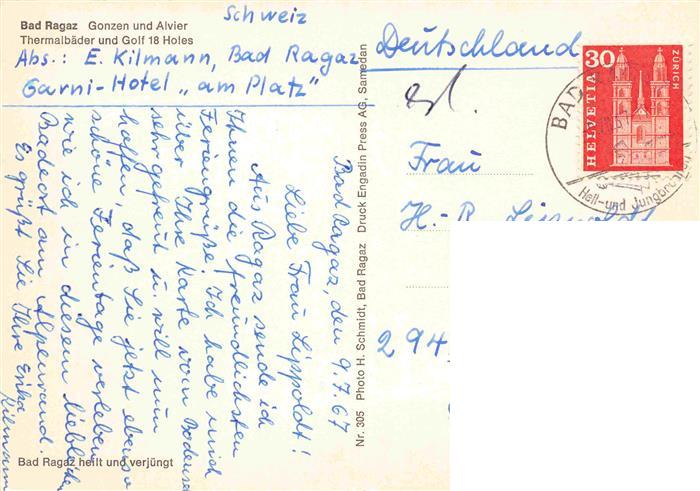 Schweiz
Bad Ragaz Gonzen und Alvier
Thermalbäder und Golf 18 Holes
Abs.: E. Kilmann, Bad Ragaz
Garni-Hotel „am Platz"
Bad Ragaz, den 9.7.67
Liebe Frau Lippoldt!
Aus Ragaz sende ich
Ihnen die freundlichsten
Feriengrüße! Ich habe mich
über Ihre Karte vom Bodensee
sehr gefreut u. will nun
hoffen, daß Sie jetzt ebenso
schöne Ferientage verleben
wie ich in diesem lieblichen
Badeort am Alpenrand.
Es grüßt Sie Ihre Erika
Kilmann
Bad Ragaz heilt und verjüngt
Nr. 305 Photo H. Schmidt, Bad Ragaz Druck Engadin Press AG, Samedan
Deutschland
Frau
H.-R. Lippoldt
294
30
HELVETIA
ZÜRICH
BAD
Heil- und Jungbr